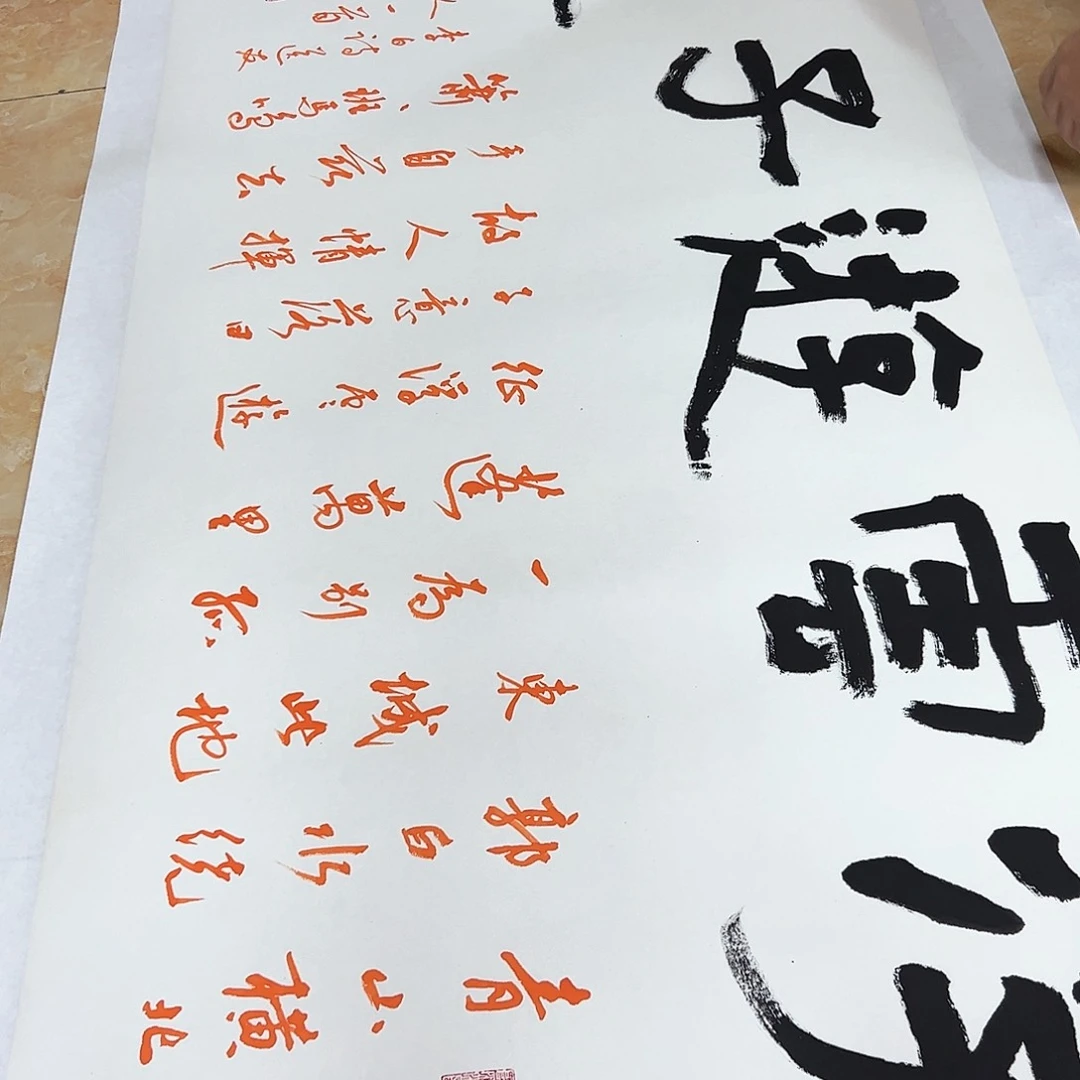 浮雲遊子
青山橫北
郭白水繞
東城此地
一為別孤
蓬萬里
征浮云遊
子意落日
故人情揮
手自茲去
蕭、班馬鳴
李白詩送友
人一首